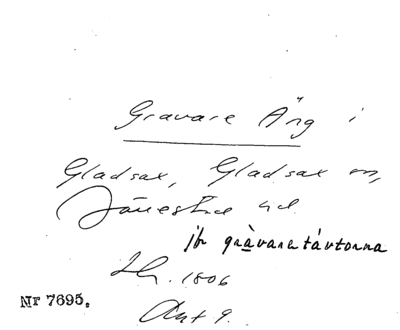 Gravare Äng i
Gladsax, Gladsax sn,
Järrestad hd.
jfr gràvaretávtorna
Lh. 1806
Akt 9.
Nr 7695.